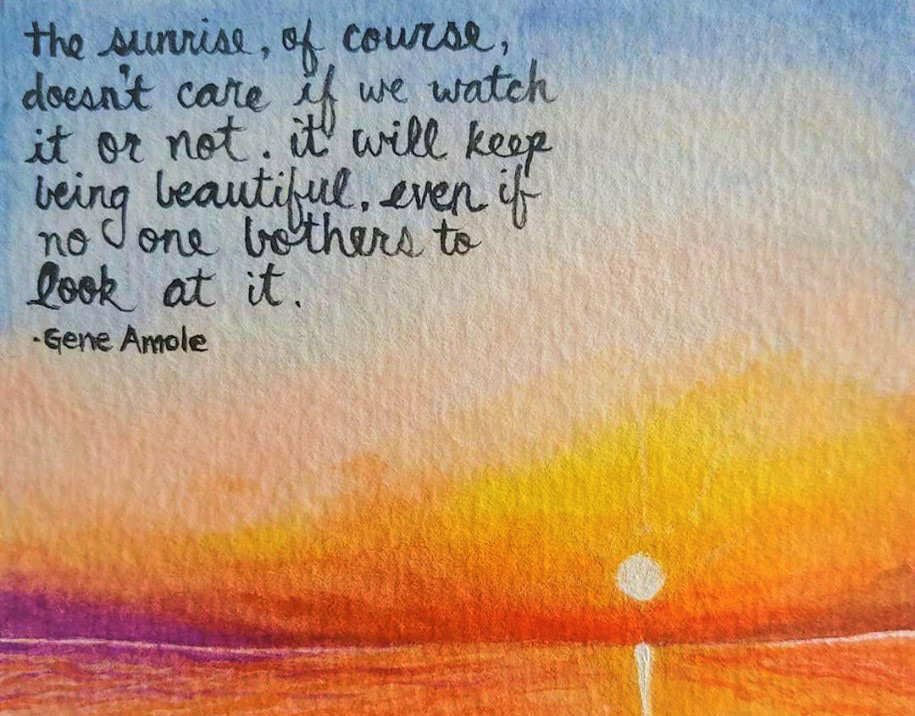 the sunrise, of course,
doesn't care if we watch
it or not. it will keep
being beautiful, even if
no one bothers to
look at it.
-Gene Amole